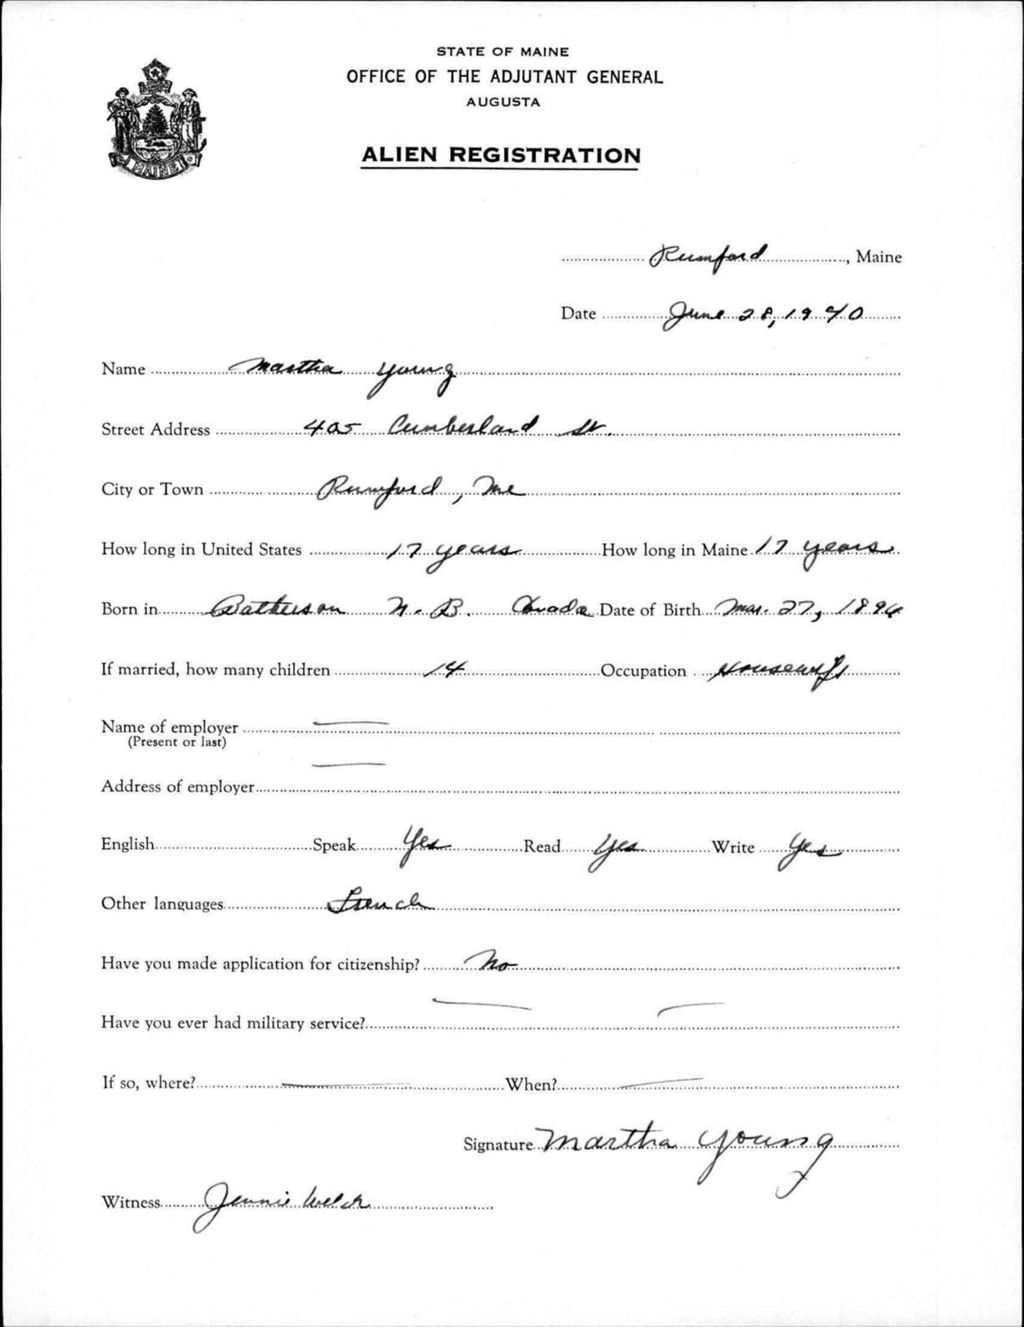 STATE OF MAINE
OFFICE OF THE ADJUTANT GENERAL
AUGUSTA
ALIEN REGISTRATION
MAINE
Rumford, Maine
Date June 28, 1940
Name Martha Young
Street Address 405 Cumberland St.
City or Town Rumford, Me
How long in United States 17 years How long in Maine 17 years
Born in N. B. Canada Date of Birth Mar. 27, 1896
If married, how many children 14 Occupation Housewife
Name of employer
(Present or last)
Address of employer
English Speak Yes Read Yes Write Yes
Other languages French
Have you made application for citizenship? No
Have you ever had military service?
If so, where? When?
Signature Martha Young
Witness Jennie Welch